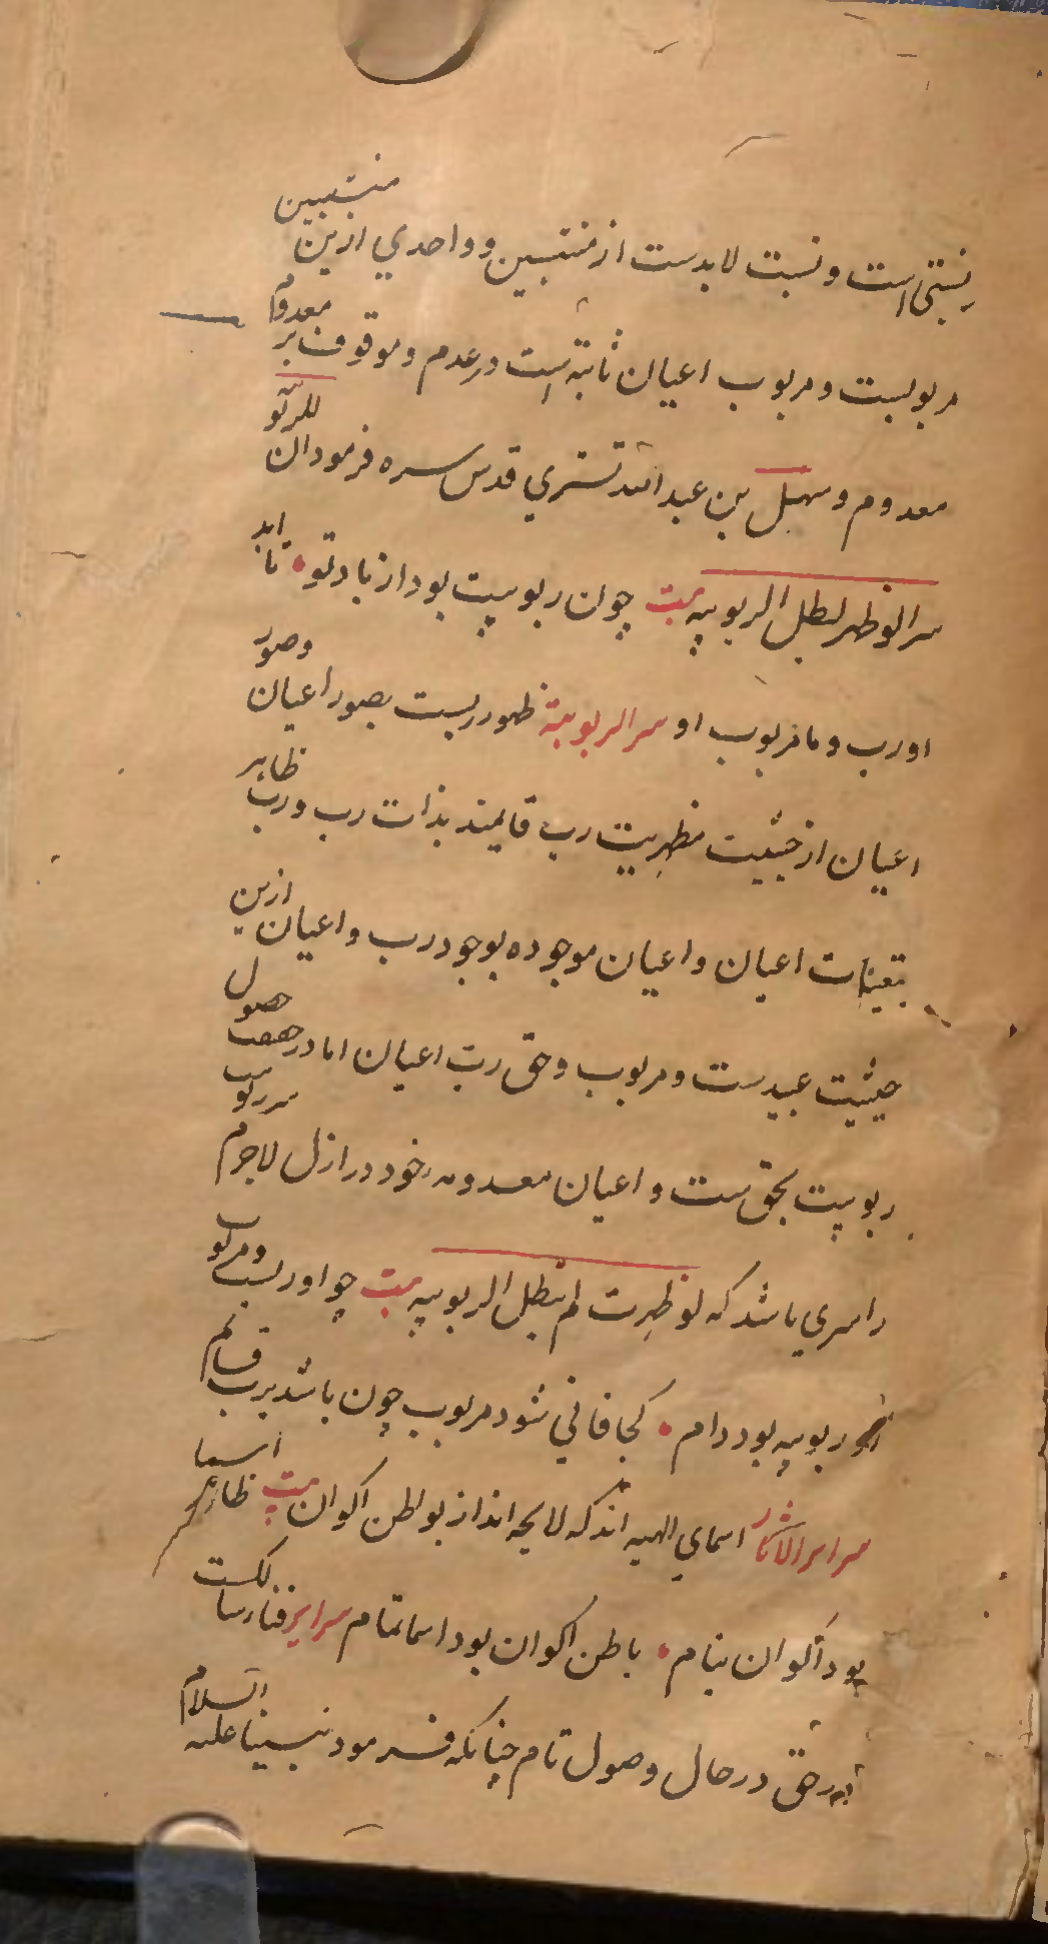 نسبتی است و نسبت لابدست از منتسبین و واحدی ازین منتسبین
مربوبست و مربوب اعیان ثابته است در عدم و موقوف بر معدوم
معدوم و سهل بن عبد الله تستری قدس سره فرمود ان للربوبیة
سرا لو ظهر لبطل الربوبیه بیت چون ربوبیت بود از یاد تو تا ابد
او رب و ما مربوب او سر الربوبیة ظهور ربست بصور اعیان و صور
اعیان از حیثیت مظهریت رب قایمند بذات رب و رب ظاهر
بتعینات اعیان و اعیان موجوده بوجود رب و اعیان ازین
حیثیت عبیدست و مربوب و حق رب اعیان اما در حصول
ربوبیت بحق ست و اعیان معدومه خود در ازل لاجرم سر ربوبیت
را سری باشد که لو ظهرت لم تبطل الربوبیه بیت چو او ربست و مربوب
ربوبیه بود دام کجا فانی شود مربوب چون باشد برب قایم
سرایر الاثار اسمای الهیه اند که لایحه اند از بواطن اکوان بیت ظاهر اسما
بود اکوان بنام باطن اکوان بود اسما تمام سرایر فنا سالکست
در حق در حال وصول تام چنانکه فرمود نبینا علیه السلام